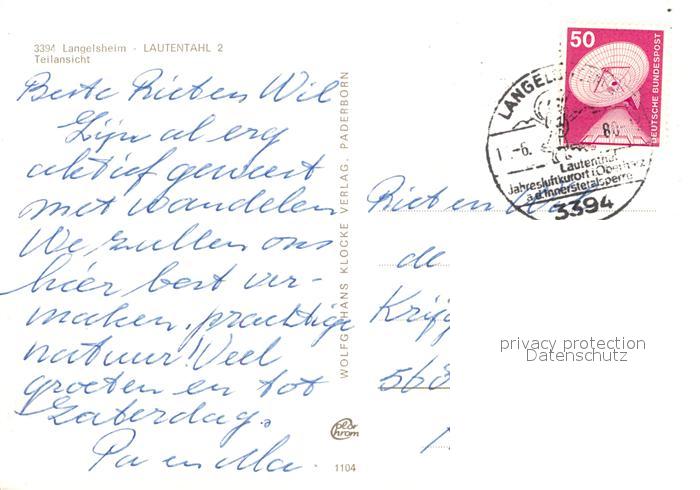 3394 Langelsheim - LAUTENTAHL 2
Teilansicht
Beste Riet en Wil
Zijn al erg
aktief geweest
met wandelen
We zullen ons
hier best ver-
maken, prachtige
natuur! Veel
groeten en tot
Zaterdag.
Pa en Ma.
WOLFGG. HANS KLOCKE VERLAG, PADERBORN
1104
50
DEUTSCHE BUNDESPOST
LANGELS
-6. 80
Lautenthal
Jahresluftkurort i. Oberharz
a.d. Innerstetalsperre
3394
Riet en
de
Krij
privacy protection
Datenschutz